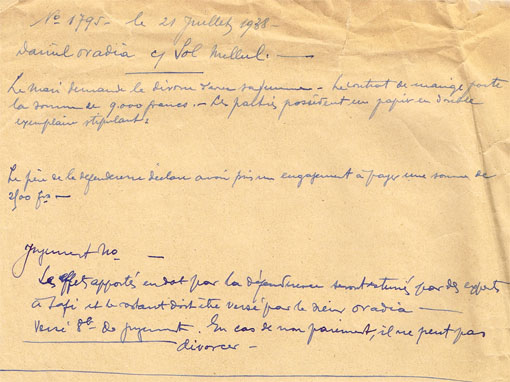 No 1795 - le 21 Juillet 1938
Daniel Ovadia c/ Sol Mellul. -
Le mari demande le divorce d'avec sa femme - Le contrat de mariage porte
la somme de 9.000 francs. - Les parties possèdent un papier en double
exemplaire stipulant:
Le père de la défenderesse déclare avoir pris un engagement à payer une somme de
2500 frs -
Jugement No -
Les effets apportés en dot par la défenderesse seront estimés par des experts
à Safi et le restant doit être versé par le sieur Ovadia -
Versé de Jugement. En cas de non paiement, il ne peut pas
divorcer -